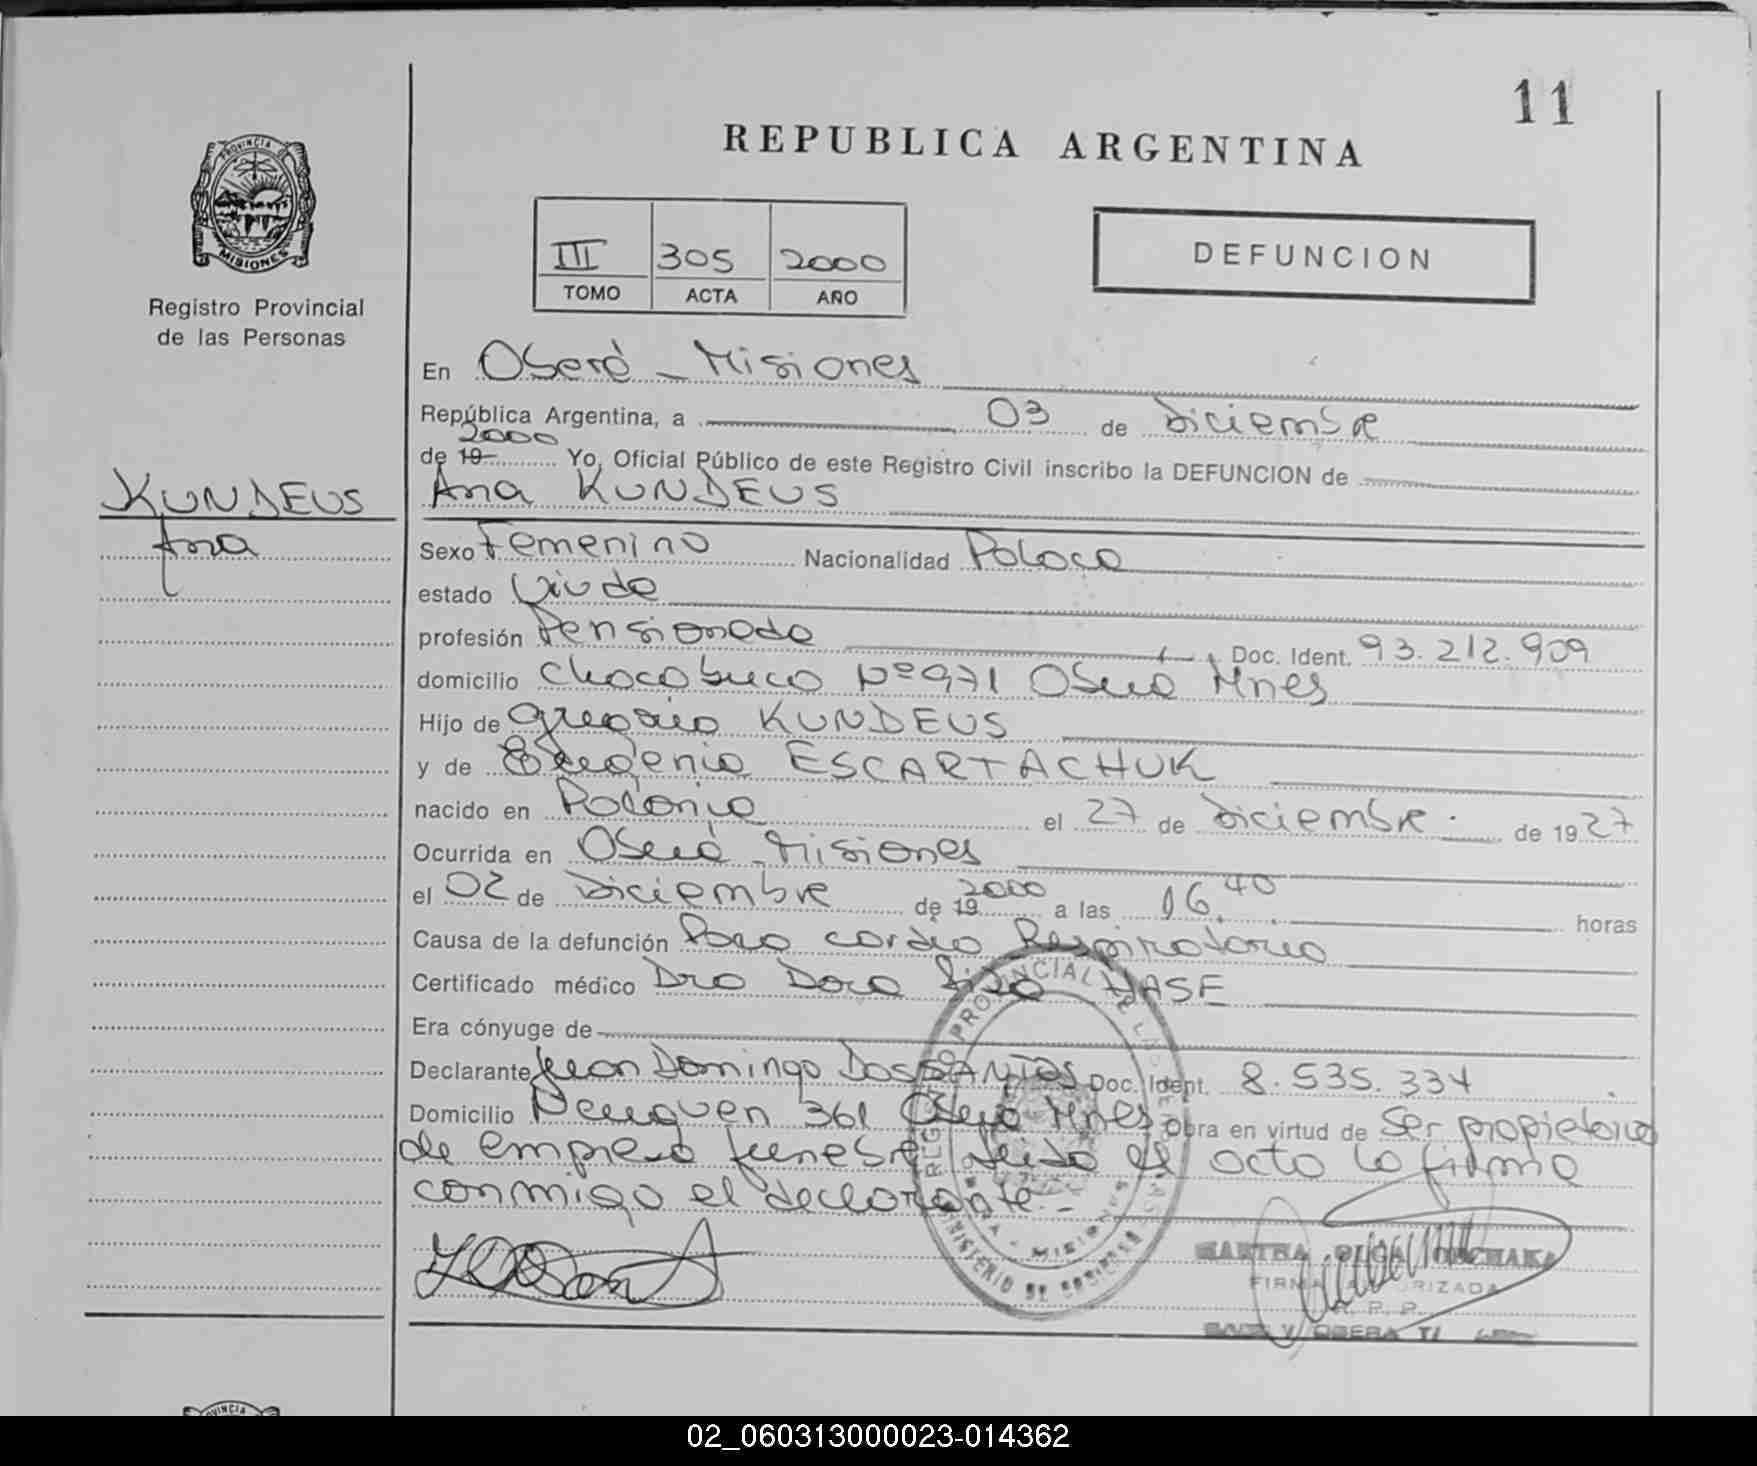 11
REPUBLICA ARGENTINA
PROVINCIA DE
MISIONES
Registro Provincial
de las Personas
III 305 2000
TOMO ACTA AÑO
DEFUNCION
En Oberá - Misiones
República Argentina, a 03 de Diciembre
2000
de 19 Yo, Oficial Público de este Registro Civil inscribo la DEFUNCION de
KUNDEUS
Ana
Ana KUNDEUS
Sexo Femenino Nacionalidad Polaca
estado Viuda
profesión Pensionada Doc. Ident. 93.212.909
domicilio Chacabuco Nº 971 Oberá Mnes
Hijo de Gregorio KUNDEUS
y de Eugenia ESCARTACHUK
nacido en Polonia el 27 de Diciembre de 1927
Ocurrida en Oberá - Misiones
el 02 de Diciembre de 19 2000 a las 16,40 horas
Causa de la defunción Paro cardio Respiratorio
Certificado médico Dra Dora HASE
Era cónyuge de
Declarante Juan Domingo DOSSANTOS Doc. Ident. 8.535.334
Domicilio Neuquen 361 Oberá Mnes Obra en virtud de Ser propietario
de empresa funebre leida el acta la firma
conmigo el declarante.-
REGISTRO PROVINCIAL DE LAS PERSONAS
MISIONES
MINISTERIO DE GOBIERNO
MARTHA OLGA
FIRMA AUTORIZADA
R. P. P.
OBERA
PROVINCIA
02_060313000023-014362